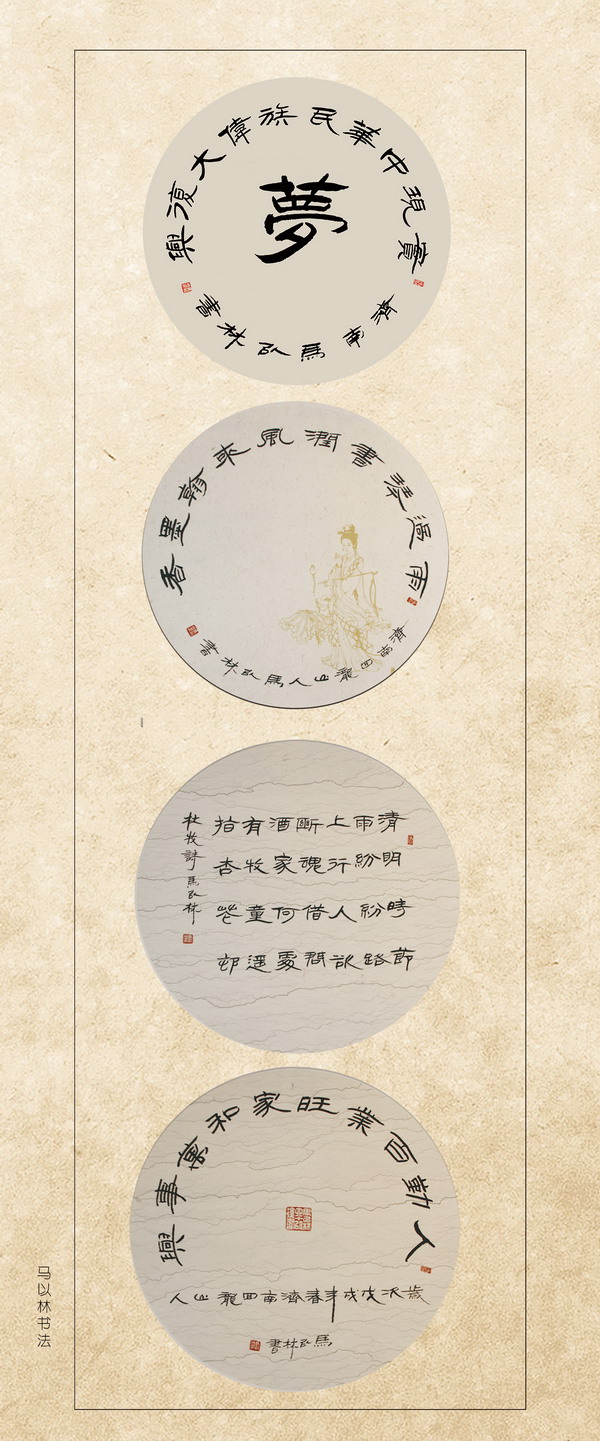 實現中華民族偉大復興
夢
濟南馬㕥林書
雨過琴書潤風來翰墨香
濟南四龍山人馬㕥林書
清明時節
雨紛紛路
上行人欲
斷魂借問
酒家何處
有牧童遥
指杏花邨
杜牧詩馬㕥林
人勤百業旺家和萬事興
歲次戊戌年春濟南四龍山人
馬㕥林書
马以林书法